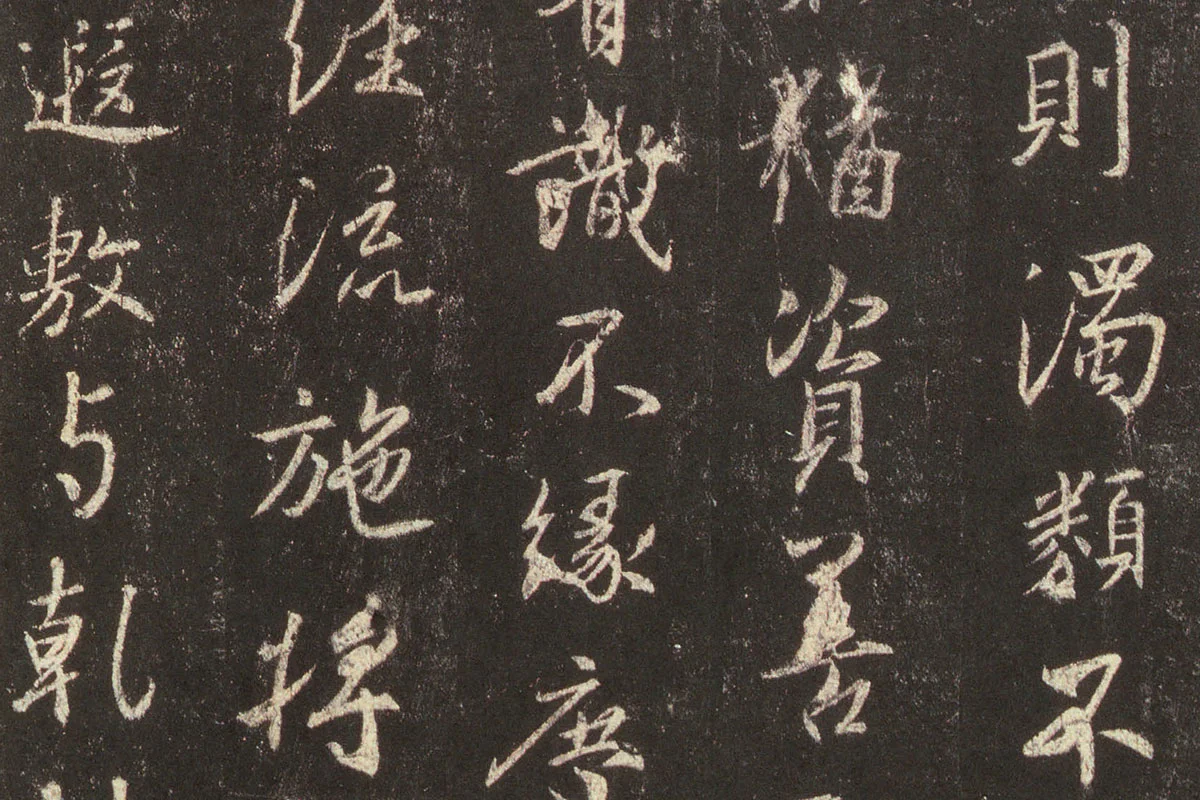 則濁類不
猶資善
有識不緣慶
經流施將
遐敷与乾